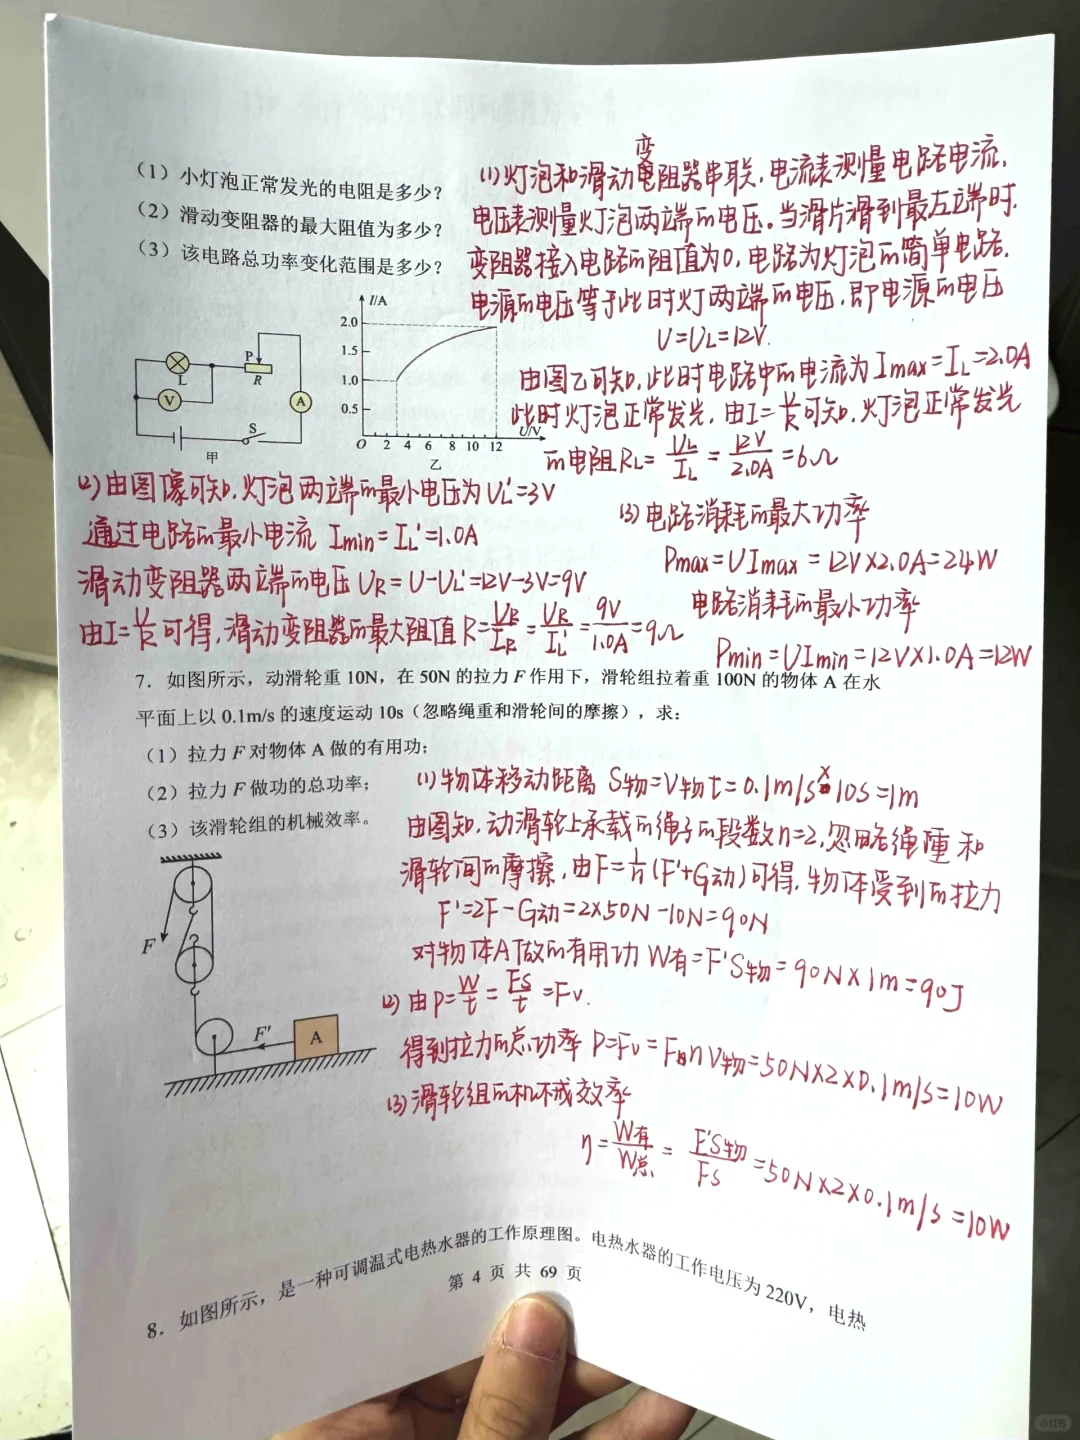 (1) 小灯泡正常发光的电阻是多少?
(2) 滑动变阻器的最大阻值为多少?
(3) 该电路总功率变化范围是多少?
(1)灯泡和滑动变阻器串联,电流表测量电路电流,
电压表测量灯泡两端的电压。当滑片滑到最左端时,
变阻器接入电路的阻值为0,电路为灯泡的简单电路,
电源的电压等于此时灯两端的电压,即电源的电压
U=UL=12V.
由图乙可知,此时电路中的电流为Imax=IL=2.0A
此时灯泡正常发光,由I=U/R可知,灯泡正常发光
的电阻RL=UL/IL=12V/2.0A=6Ω
P
L
R
V
A
S
甲
I/A
2.0
1.5
1.0
0.5
O 2 4 6 8 10 12
U/V
乙
(2)由图像可知,灯泡两端的最小电压为UL'=3V
通过电路的最小电流 Imin=IL'=1.0A
滑动变阻器两端的电压UR=U-UL'=12V-3V=9V
由I=U/R可得,滑动变阻器的最大阻值R=UR/IR=UR/IL'=9V/1.0A=9Ω
(3)电路消耗的最大功率
Pmax=UImax=12V×2.0A=24W
电路消耗的最小功率
Pmin=UImin=12V×1.0A=12W
7. 如图所示,动滑轮重 10N,在 50N 的拉力 F 作用下,滑轮组拉着重 100N 的物体 A 在水
平面上以 0.1m/s 的速度运动 10s(忽略绳重和滑轮间的摩擦),求:
(1)拉力 F 对物体 A 做的有用功;
(2)拉力 F 做功的总功率;
(3)该滑轮组的机械效率。
(1)物体移动距离 S物=V物t=0.1m/s×10s=1m
由图知,动滑轮上承载的绳子的段数n=2,忽略绳重和
滑轮间的摩擦,由F=1/n(F'+G动)可得,物体受到的拉力
F'=2F-G动=2×50N-10N=90N
对物体A做的有用功W有=F'S物=90N×1m=90J
(2)由P=W/t=Fs/t=Fv.
得到拉力的总功率P=Fv=FnV物=50N×2×0.1m/s=10W
(3)滑轮组的机械效率
η=W有/W总=F'S物/Fs=50N×2×0.1m/s=10W
F
F'
A
8. 如图所示,是一种可调温式电热水器的工作原理图。电热水器的工作电压为 220V,电热
第 4 页 共 69 页
小红书